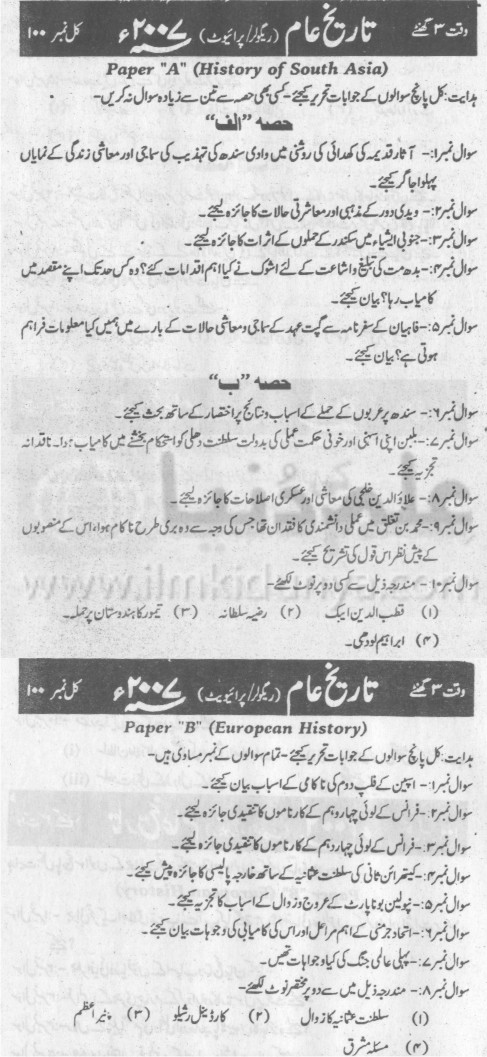 وقت ۳ گھنٹے تاریخ عام (ریگولر/پرائیوٹ) ۲۰۰۷ء کل نمبر ۱۰۰
Paper "A" (History of South Asia)
ہدایت: کل پانچ سوالوں کے جوابات تحریر کیجئے۔ کسی بھی حصہ سے تین سے زیادہ سوال نہ کریں۔
حصہ "الف"
سوال نمبر۱:۔ آثار قدیمہ کی کھدائی کی روشنی میں وادی سندھ کی تہذیب کی سماجی اور معاشی زندگی کے نمایاں
پہلو اجاگر کیجئے۔
سوال نمبر۲:۔ ویدی دور کے مذہبی اور معاشرتی حالات کا جائزہ لیجئے۔
سوال نمبر۳:۔ جنوبی ایشیاء میں سکندر کے حملوں کے اثرات کا جائزہ لیجئے۔
سوال نمبر۴:۔ بدھ مت کی تبلیغ و اشاعت کے لئے اشوک نے کیا اہم اقدامات کئے؟ وہ کس حد تک اپنے مقصد میں
کامیاب رہا؟ بیان کیجئے۔
سوال نمبر۵:۔ فاہیان کے سفرنامہ سے گپت عہد کے سماجی و معاشی حالات کے بارے میں ہمیں کیا معلومات فراہم
ہوتی ہے؟ بیان کیجئے۔
حصہ "ب"
سوال نمبر۶:۔ سندھ پر عربوں کے حملے کے اسباب و نتائج پر اختصار کے ساتھ بحث کیجئے۔
سوال نمبر۷:۔ بلبن اپنی آہنی اور خونی حکمت عملی کی بدولت سلطنت دھلی کو استحکام بخشنے میں کامیاب ہوا۔ ناقدانہ
تجزیہ کیجئے۔
سوال نمبر۸:۔ علاؤالدین خلجی کی معاشی اور عسکری اصلاحات کا جائزہ لیجئے۔
سوال نمبر۹:۔ محمد بن تغلق میں عملی دانشمندی کا فقدان تھا جس کی وجہ سے وہ بری طرح ناکام ہوا، اس کے منصوبوں
کے پیش نظر اس قول کی تشریح کیجئے۔
سوال نمبر۱۰:۔ مندرجہ ذیل سے کسی دو پر نوٹ لکھئے۔
(۱) قطب الدین ایبک (۲) رضیہ سلطانہ (۳) تیمور کا ہندوستان پر حملہ۔
(۴) ابراہیم لودھی۔
وقت ۳ گھنٹے تاریخ عام (ریگولر/پرائیوٹ) ۲۰۰۷ء کل نمبر ۱۰۰
Paper "B" (European History)
ہدایت: کل پانچ سوالوں کے جوابات تحریر کیجئے۔ تمام سوالوں کے نمبر مساوی ہیں۔
سوال نمبر۱:۔ اسپین کے فلپ دوم کی ناکامی کے اسباب بیان کیجئے۔
سوال نمبر۲:۔ فرانس کے لوئی چہاردہم کے کارناموں کا تنقیدی جائزہ لیجئے۔
سوال نمبر۳:۔ فرانس کے لوئی چہاردہم کے کارناموں کا تنقیدی جائزہ لیجئے۔
سوال نمبر۴:۔ کیتھرائن ثانی کی سلطنت عثمانیہ کے ساتھ خارجہ پالیسی کا جائزہ پیش کیجئے۔
سوال نمبر۵:۔ نپولین بونا پارٹ کے عروج و زوال کے اسباب کا تجزیہ کیجئے۔
سوال نمبر۶:۔ اتحاد جرمنی کے اہم مراحل اور اس کی کامیابی کی وجوہات بیان کیجئے۔
سوال نمبر۷:۔ پہلی عالمی جنگ کی کیا وجوہات تھیں۔
سوال نمبر۸:۔ مندرجہ ذیل میں سے دو پر مختصر نوٹ لکھئے۔
(۱) سلطنت عثمانیہ کا زوال (۲) کارڈینل رشیلو (۳) پنیر اعظم
(۴) مسئلہ مشرق